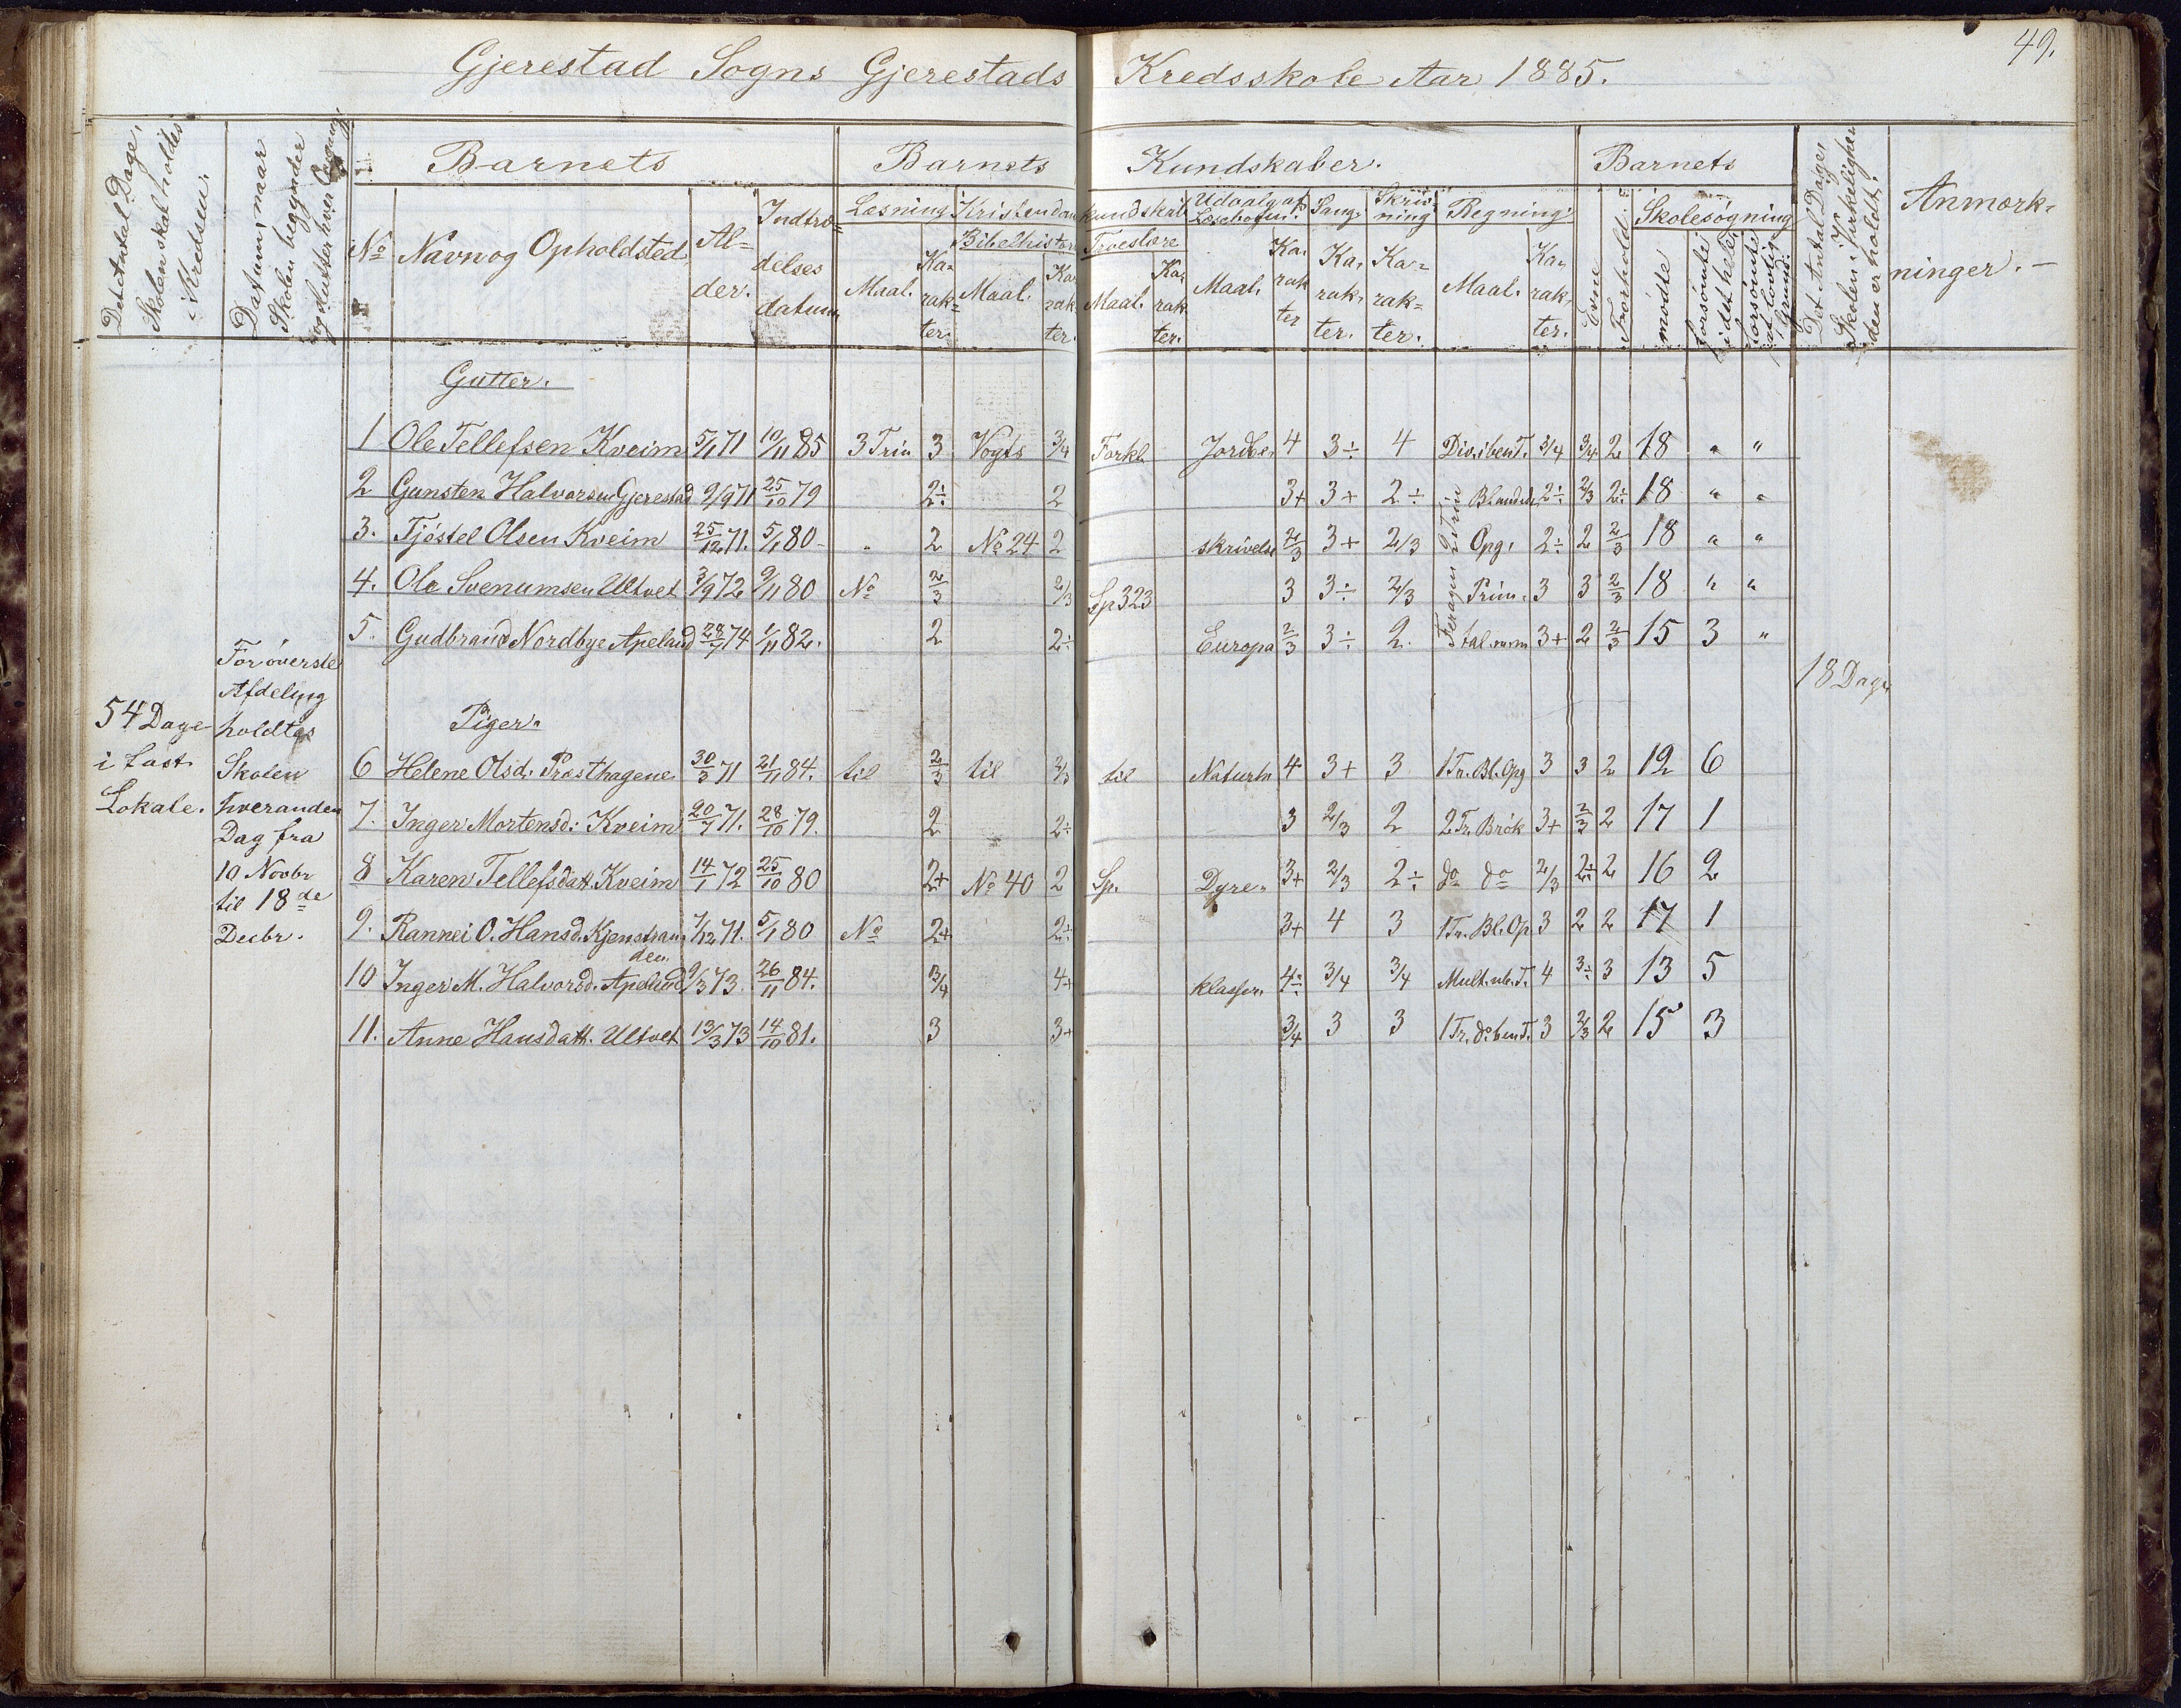 49.
Gjerestad Sogns Gjerestads Kredsskole Aar 1885.
Det Antal Dage, Skolen skal holdes i Kredsen.
Datum, naar Skolen begynder og slutter hver Omgang
Barnets
Barnets Kundskaber.
Barnets
Det Antal Dage, Skolen i Virkeligheden er holdt.
Anmærkninger.
No Navn og Opholdsted. Alder. Indtrædelses datum
Læsning Kristendomskundskab Udvalg af Læsebogen. Sang. Skrivning Regning. Evne Forhold Skolesøgning
Bibelhistorie Troeslære
Maal. Karakter. Maal. Karakter. Maal. Karakter. Maal. Karakter Karakter. Karakter. Maal. Karakter. mødte forsømte i det hele forsømte af lovlig Grund.
Gutter.
1 Ole Tellefsen Kveim 5/1 71 10/11 85 3 Trin 3 Vogts 3/4 Forkl. Jordbe, 4 3÷ 4 Div. i ben T. 3/4 3/4 2 18 " "
2 Gunsten Halvorsen Gjerestad 9/9 71 25/10 79 2÷ 2 3+ 3+ 2÷ Blandede 2÷ 2/3 2÷ 18 " "
3. Tjøstel Olsen Kveim 25/12 71. 5/1 80 " 2 No 24 2 skrivelse 2/3 3+ 2/3 Opg. 2÷ 2 2/3 18 " "
4. Ole Svenumsen Ultvet 3/9 72 9/11 80 No 2/3 2/3 Sp 323 3 3÷ 2/3 Prim. 3 3 2/3 18 " "
5. Gudbrand Nordbye Apeland 28/7 74 1/11 82. 2 2÷ Europa 2/3 3÷ 2. tal 3+ 2 2/3 15 3 "
2 Trin
54 Dage
i fast
Lokale.
For øverste
Afdeling
holdtes
Skolen
hveranden
Dag fra
10 Novbr
til 18de
Decbr.
18 Dage
Piger.
6 Helene Olsd. Præsthagene 30/3 71 21/11 84. til 2/3 til 2/3 til Naturh 4 3+ 3 1 Tr. Bl. Opg 3 3 2 12 6
7. Inger Mortensd: Kveim 20/7 71. 28/10 79. 2 2÷ 3 2/3 2 2 Tr. Brøk 3+ 2/3 2 17 1
8 Karen Tellefsdatt. Kveim 14/1 72 25/10 80 2+ No 40 2 Sp. Dyre- 3+ 2/3 2÷ do do 2/3 2÷ 2 16 2
9. Rannei O. Hansd. Kjenstran- 7/12 71. 5/1 80 No 2+ 2÷ 3+ 4 3 1 Tr. Bl. Op 3 2 2 17 1
den.
10 Inger M. Halvorsd. Apeland 9/3 73. 26/11 84. 3/4 4+ klasser. 4÷ 3/4 3/4 Mult. ub. T. 4 3÷ 3 13 5
11. Anne Hansdatt. Ultvet 13/3 73 14/10 81. 3 3+ 3/4 3 3 1 Tr. d. ben T. 3 2/3 2 15 3